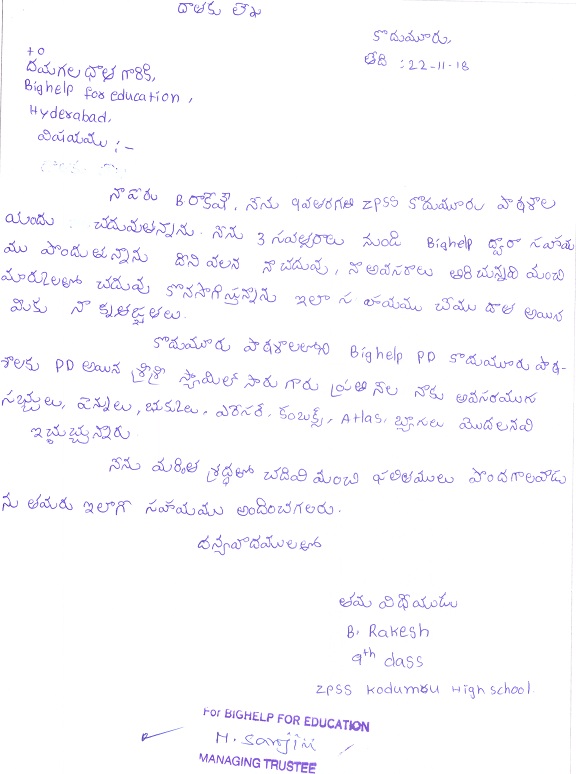 దాతకు లేఖ
కొడుమూరు,
తేది : 22-11-18
to
దయగల దాత గారికి,
Bighelp for education,
Hyderabad.
విషయము :-
నా పేరు B రాకేష్, నేను 9వతరగతి ZPSS కొడుమూరు పాఠశాల
యందు చదువుతున్నాను. నేను 3 సంవత్సరాలు నుండి Bighelp ద్వారా సహాయ
ము పొందుతున్నాను దాని వలన నా చదువు, నా అవసరాలు మంచి
మార్కులతో చదువు కొనసాగిస్తున్నాను ఇలా సహాయము చేయు దాత అయిన
మీకు నా కృతజ్ఞతలు.
కొడుమూరు పాఠశాలలోని Bighelp PD కొడుమూరు పాఠ-
శాలకు PD అయిన సారు గారు ప్రతి నెల నాకు అవసరయుగ
పెన్నులు, బుక్కులు, కంబక్స్, Atlas, బ్యాగులు మొదలనవి
ఇచ్చుచ్చున్నారు
నేను మరింత శ్రద్ధతో చదివి మంచి ఫలితములు పొందగాలవాడు
ను తమరు ఇలాగే సహాయము అందించగలరు.
దన్యవాదములతో
తమ విధేయుడు
B. Rakesh
9th class
ZPSS Kodumru High school.
For BIGHELP FOR EDUCATION
MANAGING TRUSTEE